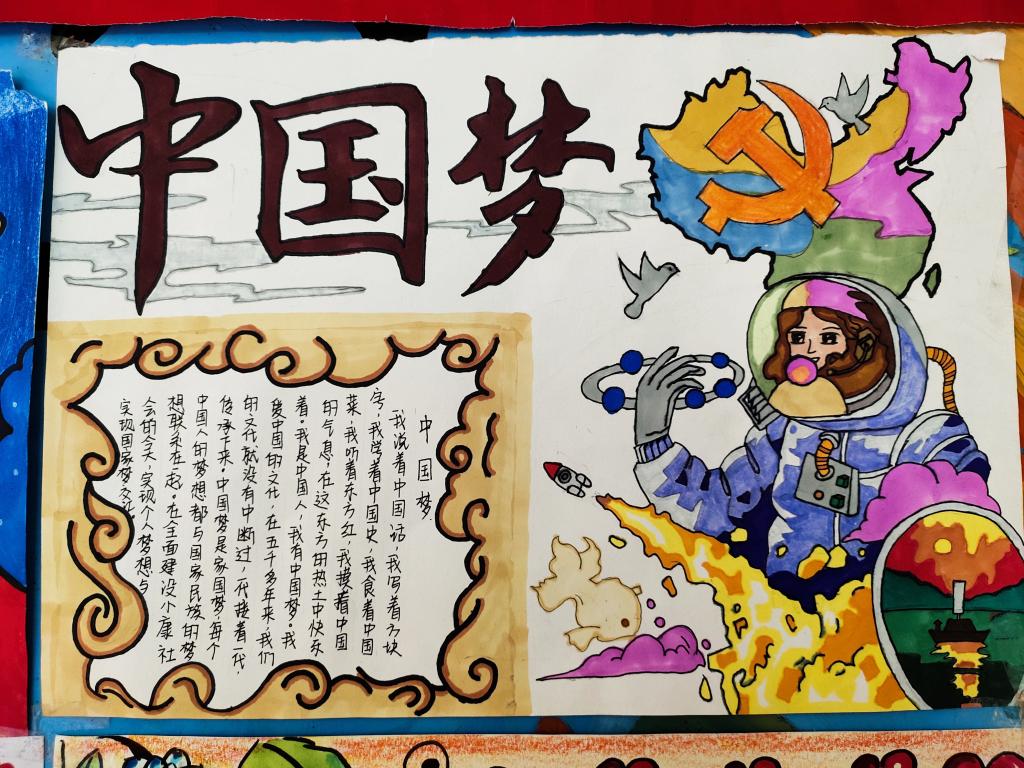 中国梦
中国梦
我说着中国话,我写着方块
字,我学着中国史,我食着中国
菜,我听着东方红,我摸着中国
的气息,在这东方的热土中快乐
着。我是中国人,我有中国梦。我
爱中国的文化,在五千多年来,我们
的文化就没有中断过,一代接着一代,
传承下来。中国梦是家国梦,每个
中国人的梦想都与国家民族的梦
想联系在一起。在全面建设小康社
会的今天,实现个人梦想与
实现国家梦